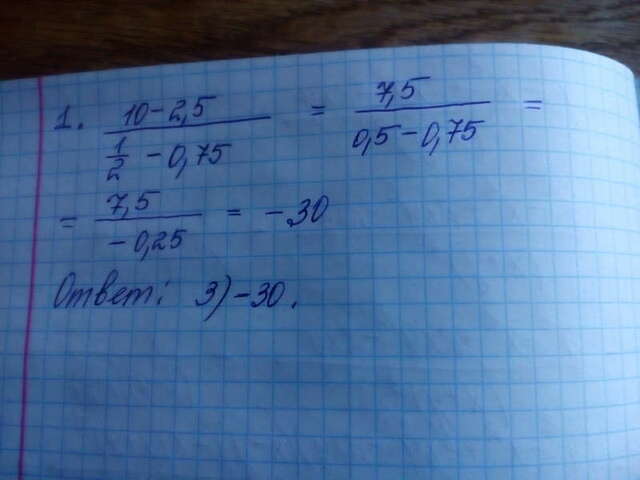 1. (10-2,5)/(1/2 - 0,75) = 7,5/(0,5-0,75) =
= 7,5/(-0,25) = -30
Ответ: 3) -30.